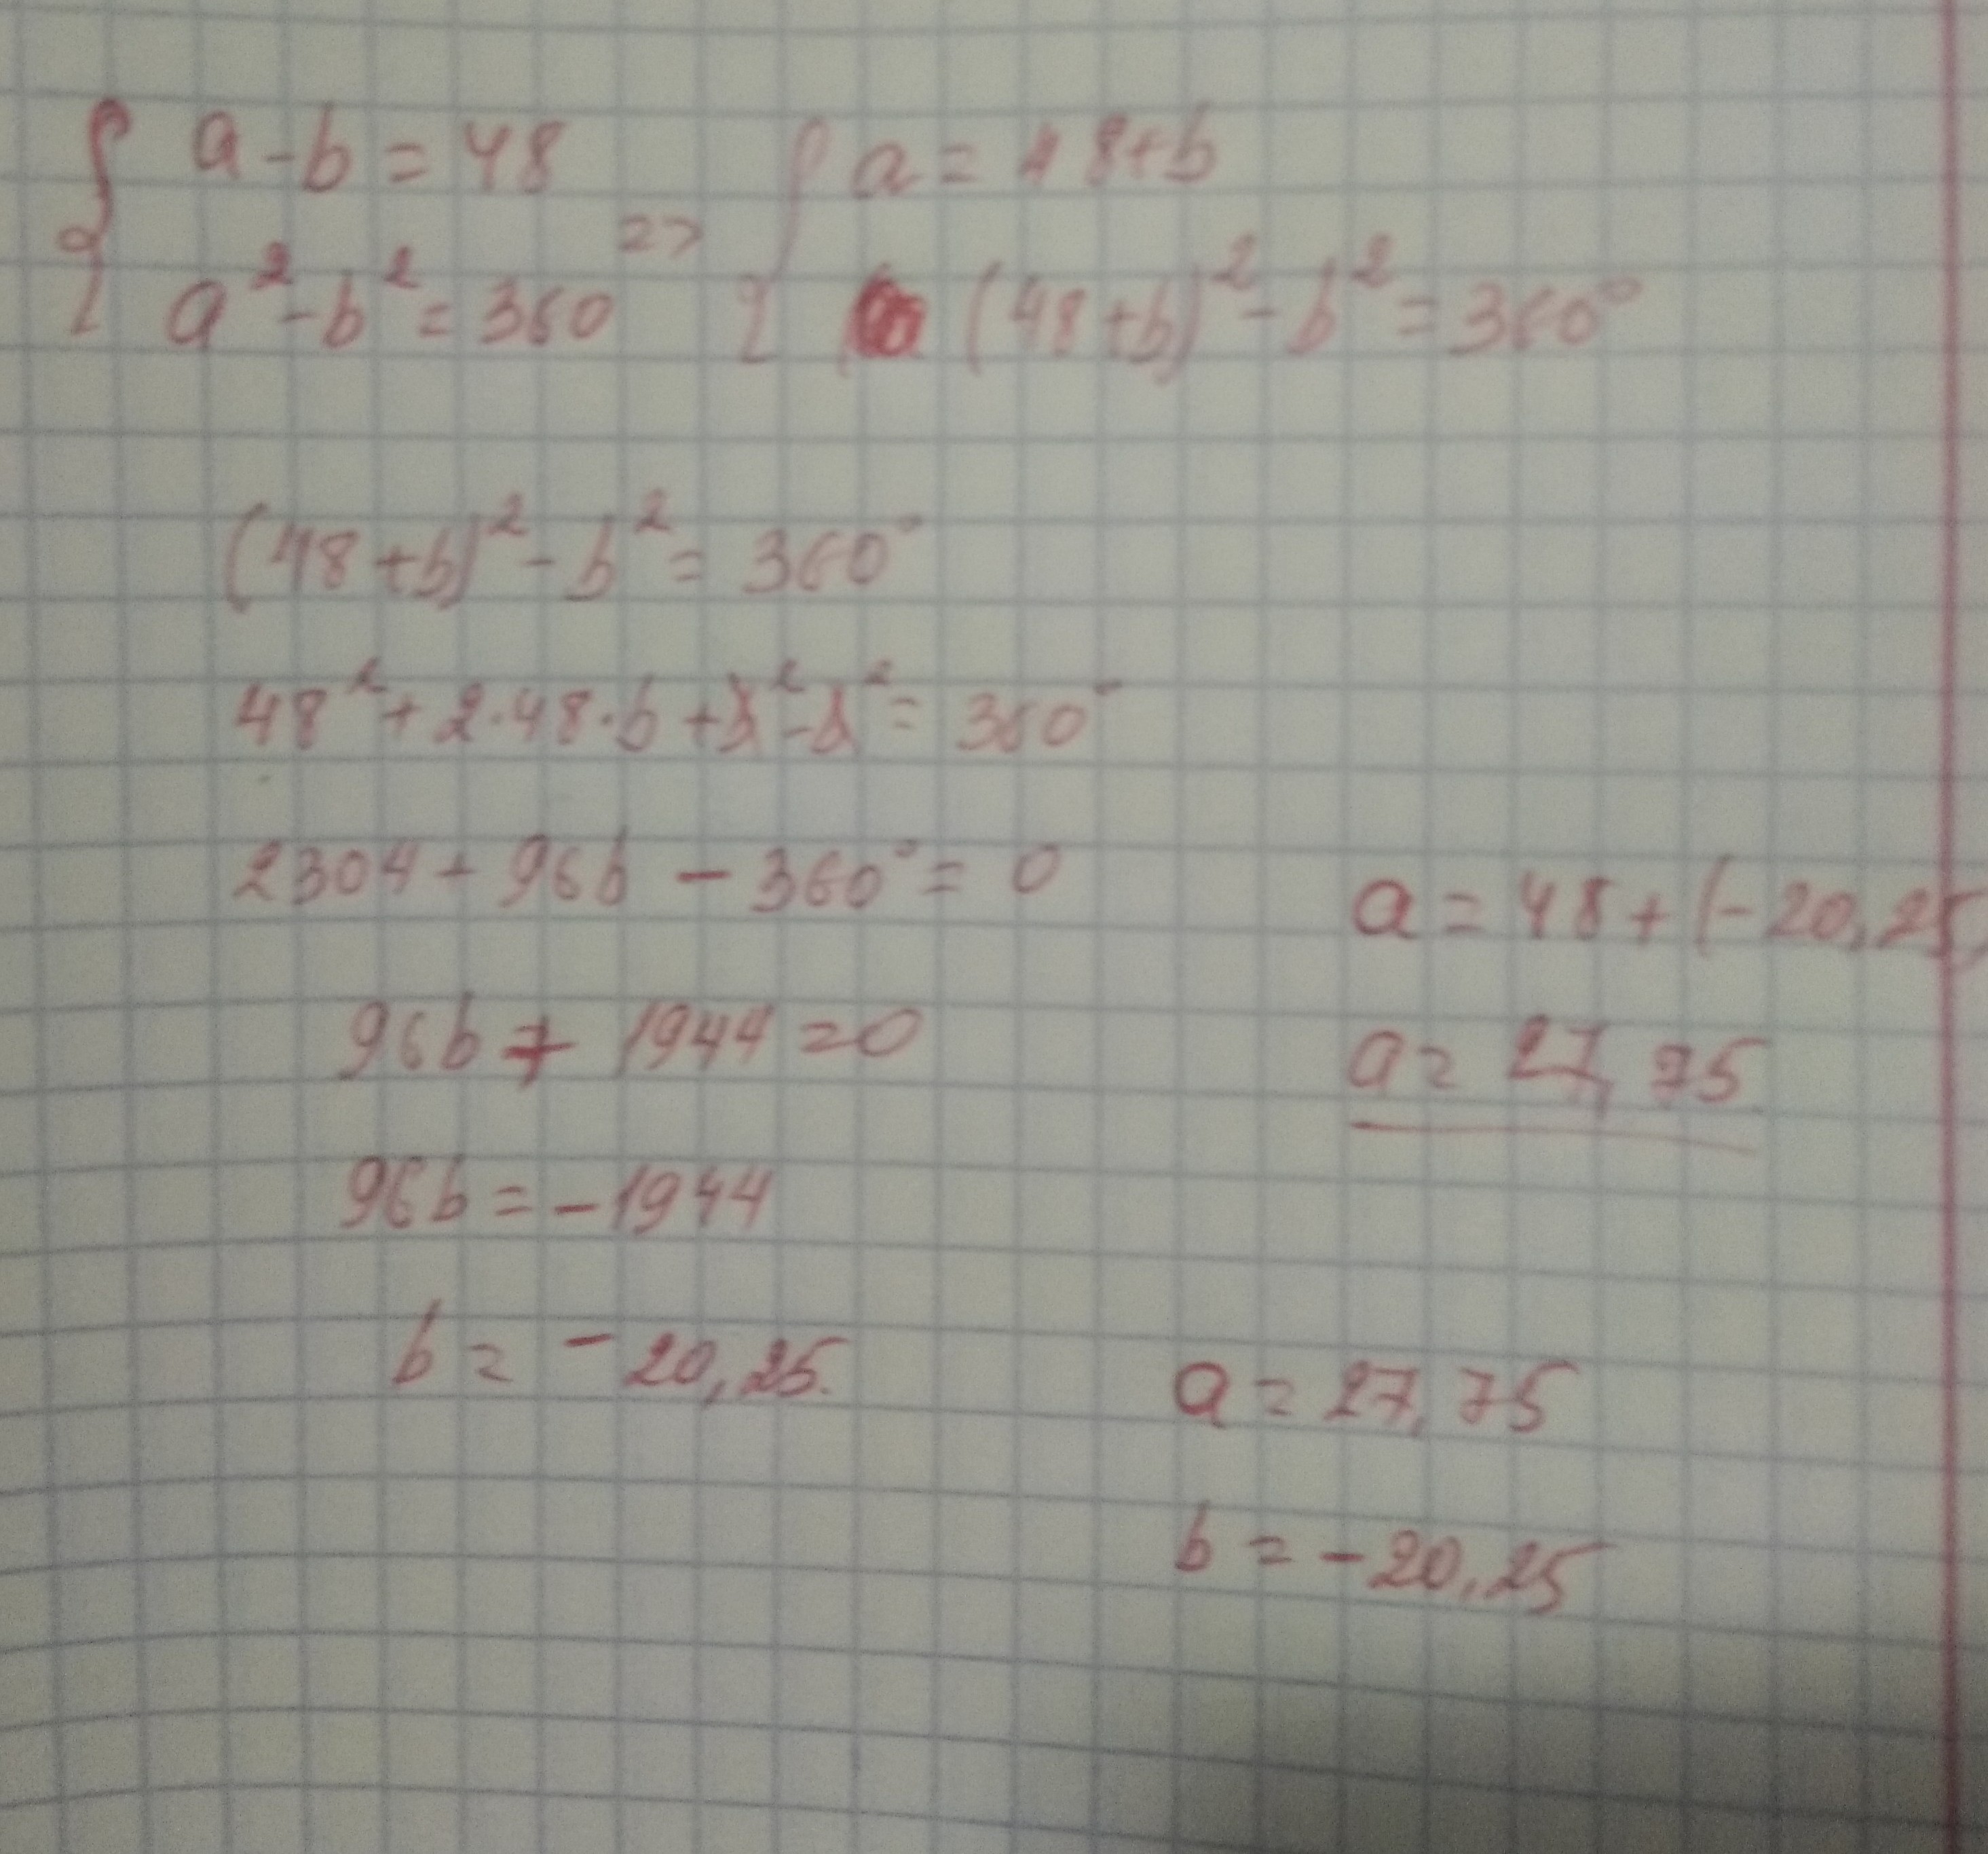 a - b = 48 => a = 48+b
a² - b² = 360 (48+b)² - b² = 360°
(48+b)² - b² = 360°
48² + 2·48·b + b² - b² = 360°
2304 + 96b - 360° = 0
96b + 1944 = 0
96b = -1944
b = -20,25.
a = 48 + (-20,25)
a = 27,75
a = 27,75
b = -20,25